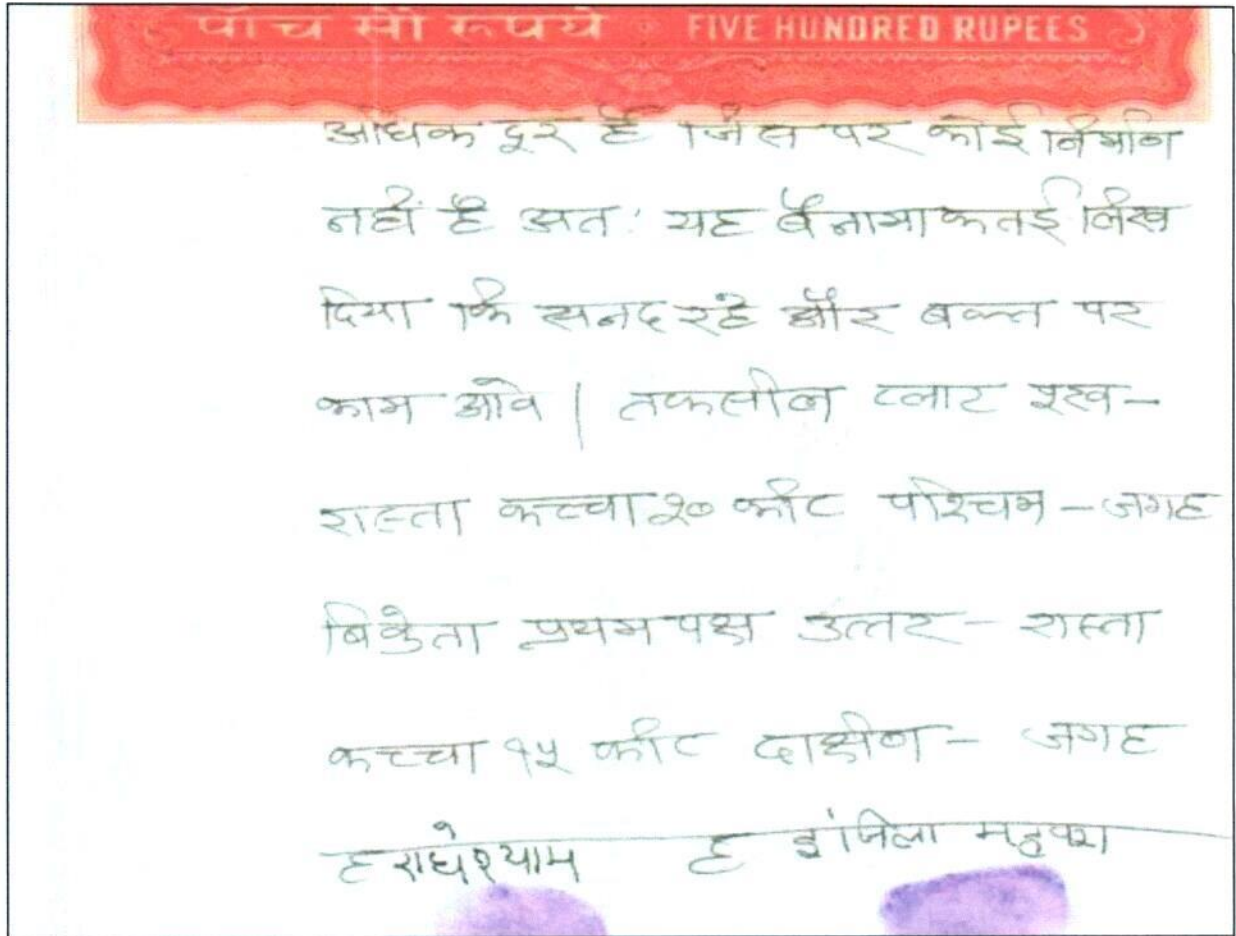 पाँच सौ रूपये FIVE HUNDRED RUPEES
अधिक दूर है जिस पर कोई निर्माण
नहीं है अतः यह बैनामा कतई लिख
दिया कि सनद रहे और बक्त पर
काम आवे | तफसील प्लाट
रास्ता कच्चा २० फीट पश्चिम - जगह
बिक्रेता प्रथम पक्ष उत्तर - रास्ता
कच्चा १५ फीट दक्षिण - जगह
ह राधेश्याम ह